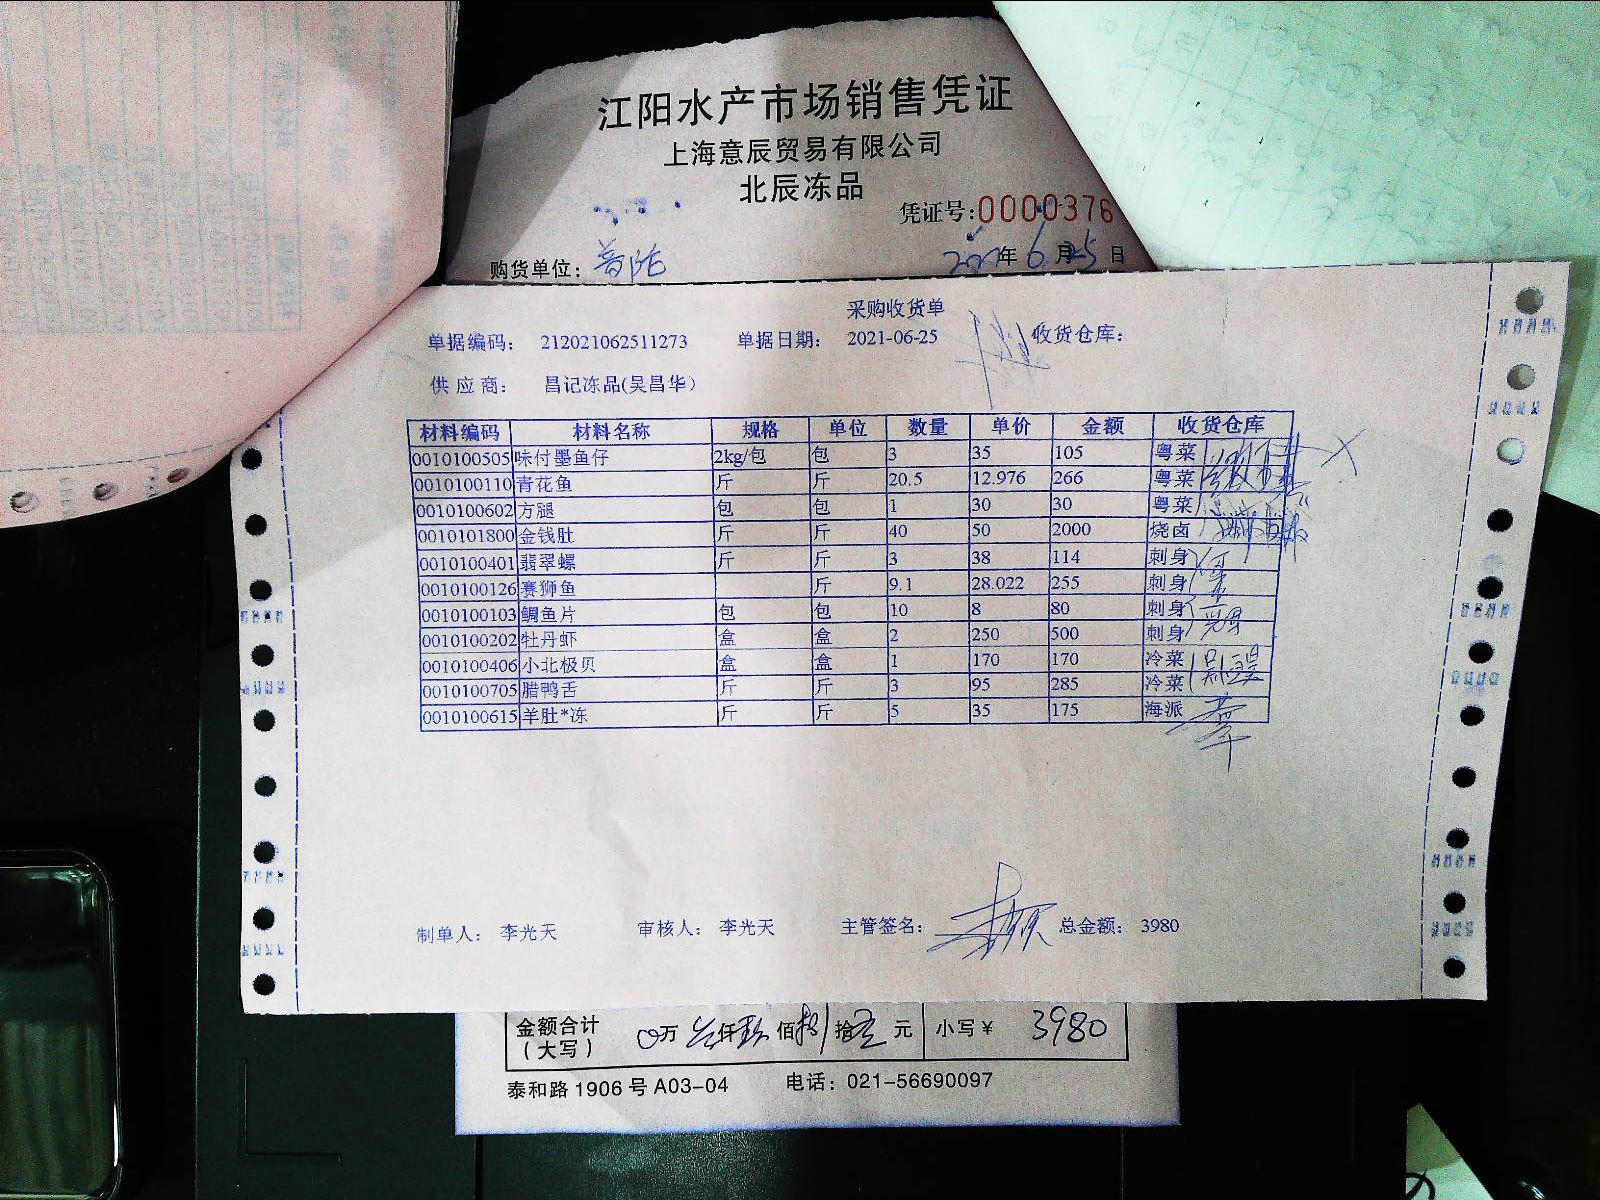 江阳水产市场销售凭证
上海意辰贸易有限公司
北辰冻品
凭证号:0000376
购货单位: 普陀
年 6 月 25 日
采购收货单
单据编码: 212021062511273 单据日期: 2021-06-25 收货仓库:
供 应 商: 昌记冻品(吴昌华)
材料编码 材料名称 规格 单位 数量 单价 金额 收货仓库
0010100505 味付墨鱼仔 2kg/包 包 3 35 105 粤菜
0010100110 青花鱼 斤 斤 20.5 12.976 266 粤菜
0010100602 方腿 包 包 1 30 30 粤菜
0010101800 金钱肚 斤 斤 40 50 2000 烧卤
0010100401 翡翠螺 斤 斤 3 38 114 刺身
0010100126 赛狮鱼 斤 9.1 28.022 255 刺身
0010100103 鲷鱼片 包 包 10 8 80 刺身
0010100202 牡丹虾 盒 盒 2 250 500 刺身
0010100406 小北极贝 盒 盒 1 170 170 冷菜
0010100705 腊鸭舌 斤 斤 3 95 285 冷菜
0010100615 羊肚*冻 斤 斤 5 35 175 海派
制单人: 李光天 审核人: 李光天 主管签名: 总金额: 3980
金额合计
(大写) 万 仟 佰 拾 元 小写¥ 3980
泰和路1906号A03-04 电话: 021-56690097